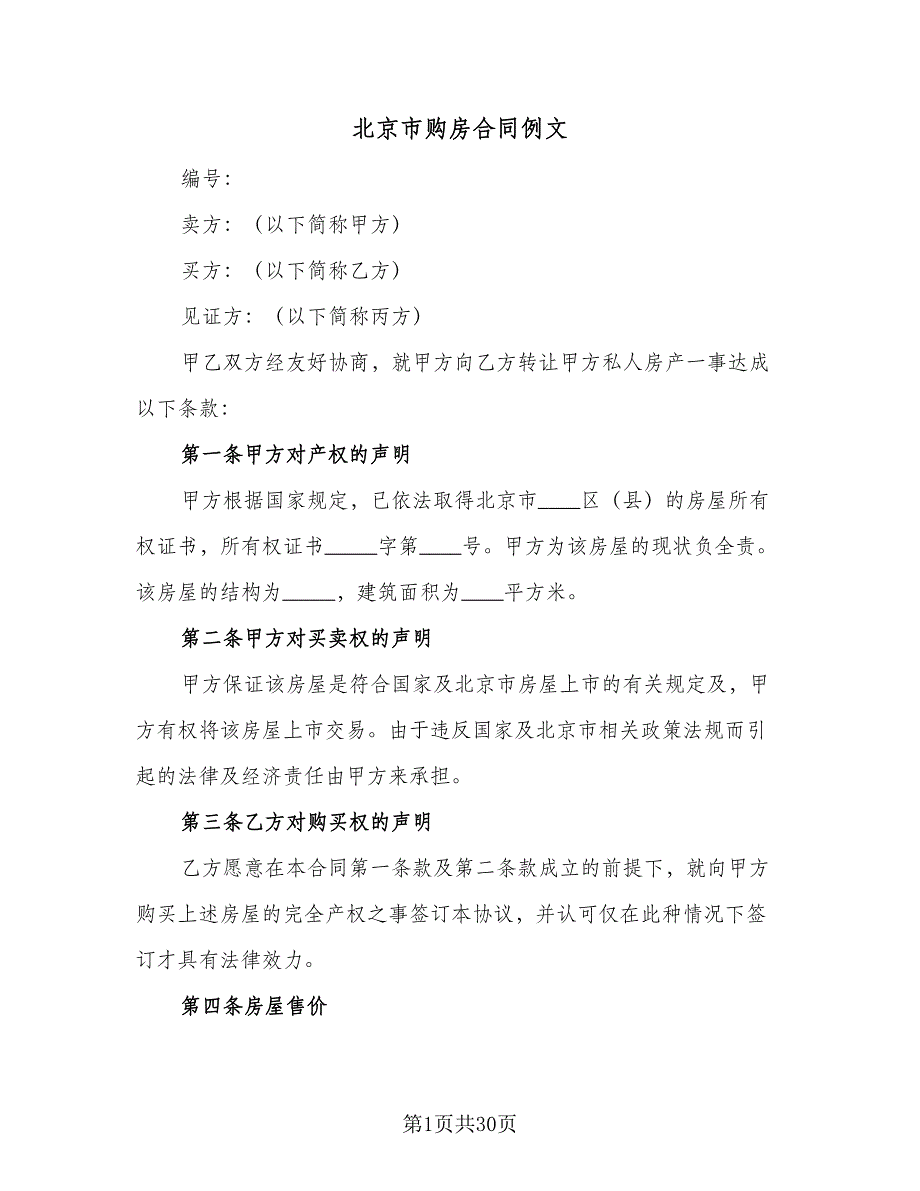 北京市购房合同例文
编号：
卖方：（以下简称甲方）
买方：（以下简称乙方）
见证方：（以下简称丙方）
甲乙双方经友好协商，就甲方向乙方转让甲方私人房产一事达成
以下条款：
第一条甲方对产权的声明
甲方根据国家规定，已依法取得北京市____区（县）的房屋所有
权证书，所有权证书_____字第____号。甲方为该房屋的现状负全责。
该房屋的结构为_____，建筑面积为____平方米。
第二条甲方对买卖权的声明
甲方保证该房屋是符合国家及北京市房屋上市的有关规定及，甲
方有权将该房屋上市交易。由于违反国家及北京市相关政策法规而引
起的法律及经济责任由甲方来承担。
第三条乙方对购买权的声明
乙方愿意在本合同第一条款及第二条款成立的前提下，就向甲方
购买上述房屋的完全产权之事签订本协议，并认可仅在此种情况下签
订才具有法律效力。
第四条房屋售价
第1页共30页